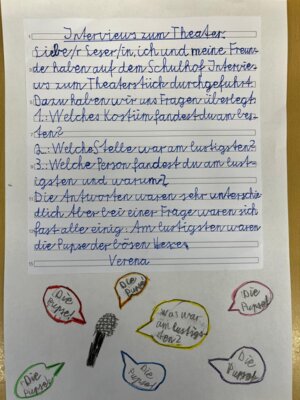 Interviews zum Theater
Liebe/r Leser/in, ich und meine Freun-
de haben auf dem Schulhof Intervie-
ws zum Theaterstück durchgeführt.
Dazu haben wir uns Fragen überlegt:
1.: Welches Kostüm fandest du am bes-
ten?
2.: Welche Stelle war am lustigsten?
3.: Welche Person fandest du am lust-
igsten und warum?
Die Antworten waren sehr unterschie-
dlich. Aber bei einer Frage waren sich
fast alle einig: Am lustigsten waren
die Pupse der bösen Hexe.
Verena
Die Pupse!
Die Pupse!
Was war am lustigs-
ten?
Die Pupse!
Die Pupse!
Die Pupse!